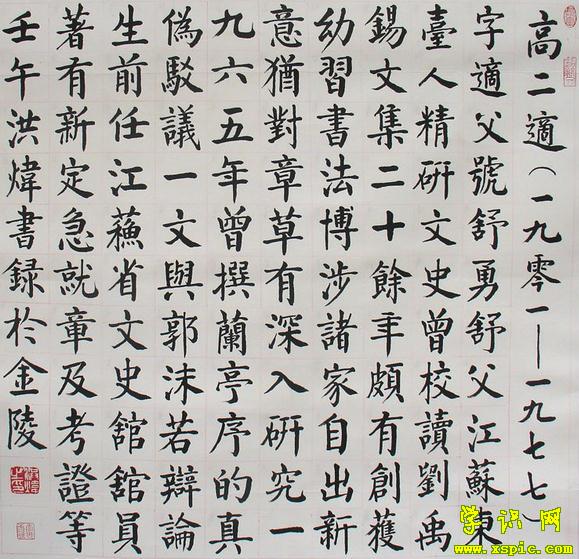 高二適（一九零一—一九七七）
字適父號舒勇舒父江蘇東
臺人精研文史曾校讀劉禹
錫文集二十餘年頗有創獲
幼習書法博涉諸家自出新
意猶對章草有深入研究一
九六五年曾撰蘭亭序的真
偽駁議一文與郭沫若辯論
生前任江蘓省文史舘舘員
著有新定急就章及考證等
壬午洪煒書録於金陵
学识网
www.xspic.com